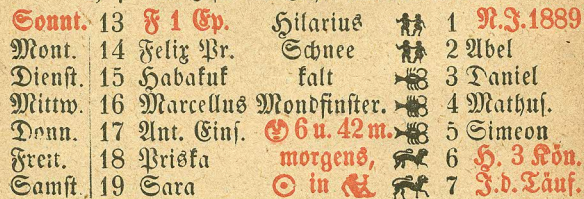 Sonnt. 13 F 1 Ep. Hilarius 1 N.J.1889
Mont. 14 Felix Pr. Schnee 2 Abel
Dienst. 15 Habakuk kalt 3 Daniel
Mittw. 16 Marcellus Mondfinster. 4 Mathus.
Donn. 17 Ant. Eins. 6 u. 42 m. 5 Simeon
Freit. 18 Priska morgens, 6 H. 3 Kön.
Samst. 19 Sara ☉ in 7 J.d. Täuf.